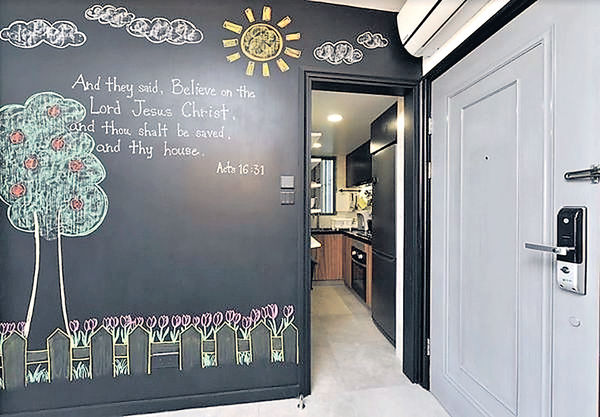 And they said, Believe on the
Lord Jesus Christ,
and thou shalt be saved,
and thy house.
Acts 16:31
16